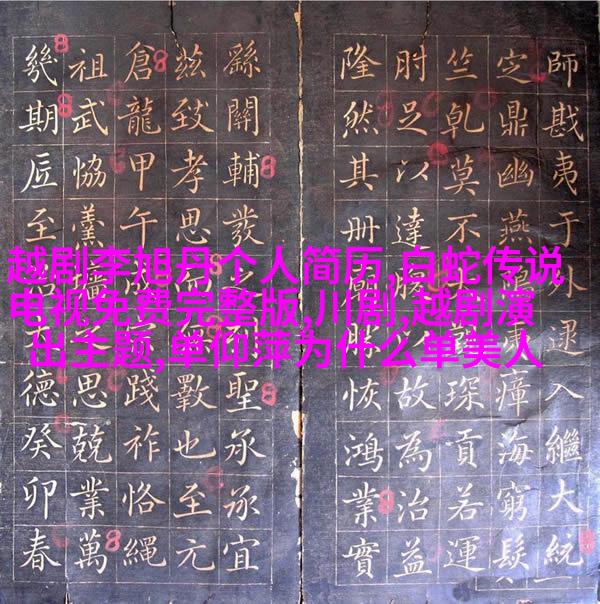 越剧李旭丹个人简历,白蛇传说
电视免费完整版,川剧,越剧演
出主题,单仰萍为什么单美人
師戡夷于外逮入繼大統
定鼎幽燕肅瘴海窮髮
竺乹莫不琛貢若運
肘足以達腹故為治益
隆然其冊廟勝恢鴻業實
繇關輔發之聖承承宜
兹致孝思而斁也至元
倉龍甲午踐祚恪繩
祖武恊羹墻思兢業萬
幾期匠至德癸卯春